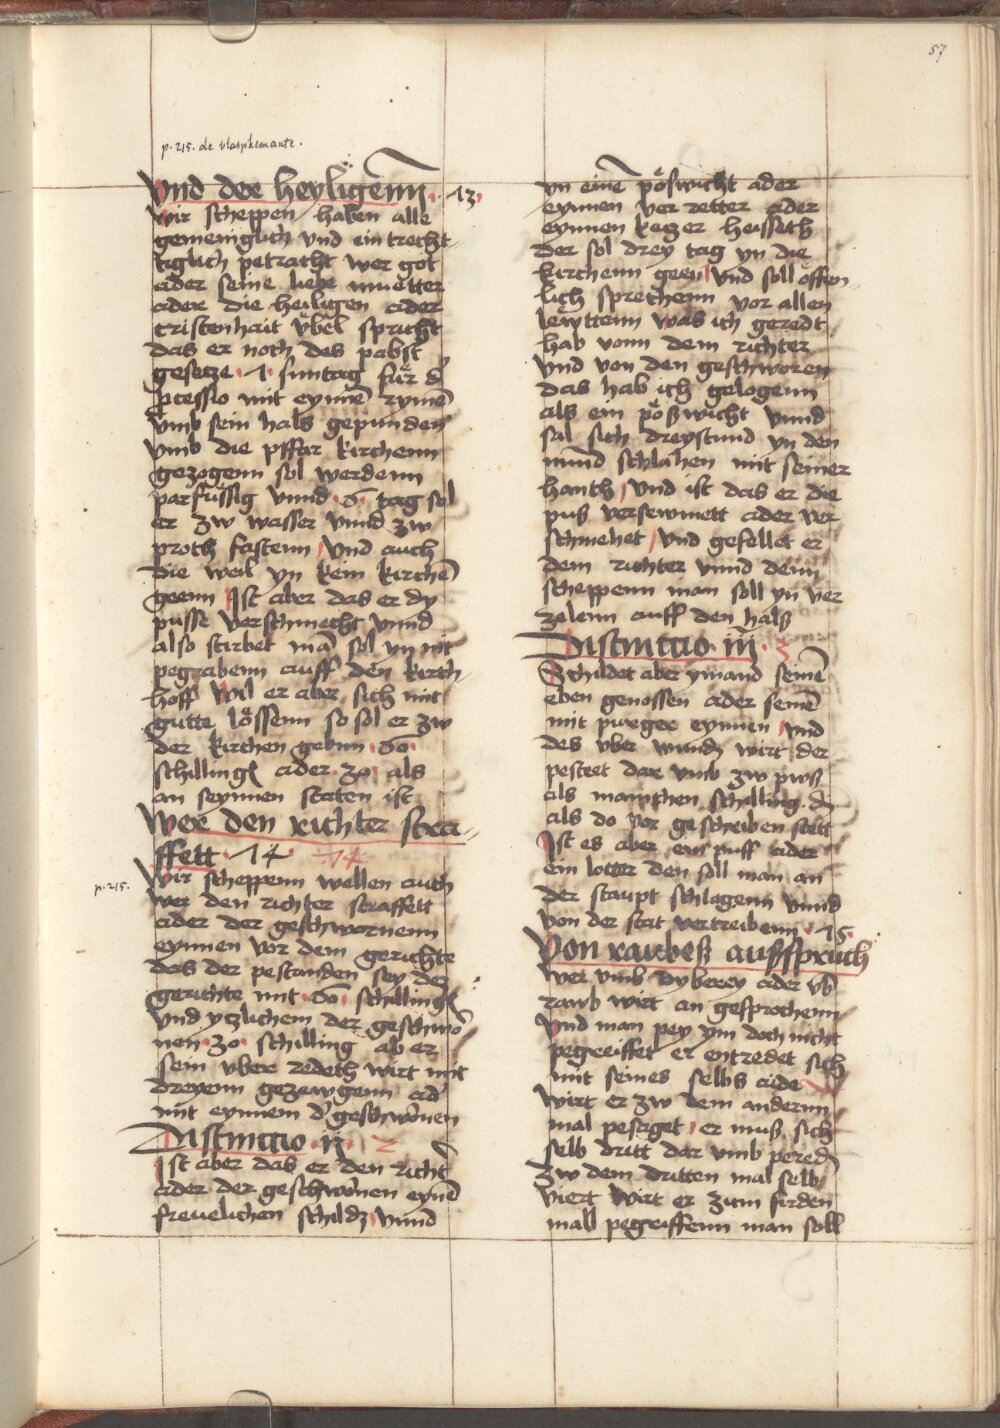 57
p. 215. de blasphemante.
Vnd der heyligenn · 13 ·
wir scheppen haben alle
gemeinglich vnd ein trecht
tiglich petracht wer got
ader seine liebe muetter
ader die heiligen ader
cristenhait vbel spricht
das er noch des pabst
gesetze · 1 · suntag für d̕
pcessio mit eynnē rymē
vmb sein hals gepunden
vmb die pffar kirchenn
gezogenn sol werdenn
parfüssig vnnd · 6 · tag sol
er zw wasser vnnd zw
proth fastenn / vnd auch
die weil yn kein kirchē
geenn Ist aber das er dy
pusse verschmecht vnnd
also stirbet mā sol yn nit
pegrabenn auff den kirch
hoff wil er aber sich mit
gutte lössenn so sol er zw
der kirchen gebnn · 60 ·
schilling ader · 30 · als
an seynnen staten ist
Wer den richter stra-
ffett · 14 · 14
Wir scheppenn wellen auch
wer den richter straffett
ader der geschwornenn
eynnen vor dem gerichte
das der pestanden sey dez
gerichte mit · 60 · schilling
vnd yczlichem der geschwo
nen · 30 · schilling ab er
sein vbere redeth wirt mit
dreyenn gezewgenn ad̕
mit eynnem d̕ geschwonen
Distinctio · ii · 2
Ist aber das er den richt̕
ader der geschwonen eynē
freuelichen schildz vnnd
p. 215.
yn einē pöswicht ader
eynnen ver retter ader
eynnen keczer heisseth
der sol drey tag yn die
kirchenn geen / vnd soll öffen
lich sprechenn vor allen
lewttenn was ich geredt
hab vonn dem richter
vnd von den geschworen
das hab ich gelogenn
als ein pößwicht vnnd
sal sich dreystund yn den
mund schlahen mit seiner
hanth / vnd ist das er die
puß versewmett ader ver
schmehet / vnd gefellet er
dem richter vnnd denn
scheppenn man soll yn ver
zelenn auff den halß
Distinctio · iii · 3
Schildet aber ymand seinē
eben genossen ader seinē
mit purger eynnen / vnd
des vber wundz wirt der
pesteet dar vmb zw pwß
als manchen schilling d̕
als do vor geschriben stett
Ist es aber ein puff ader
ein lotter den soll man an
der staupt schlagenn vnnd
von der stat vertreibenn · 15 ·
Von rawbeß auffspruch
Wer vmb dyberey ader vb̕
rawb wirt an gesprochenn
Vnd man pey ym doch nicht
pegreiffet er entredet sich
mit seines selbs aide
wirt er zw dem andernn
mal pesaget / er muß sich
selb dritt dar vmb pered̕
zw dem dritten mal selb
viert wirt er zum firden
mall pegreiffenn man soll